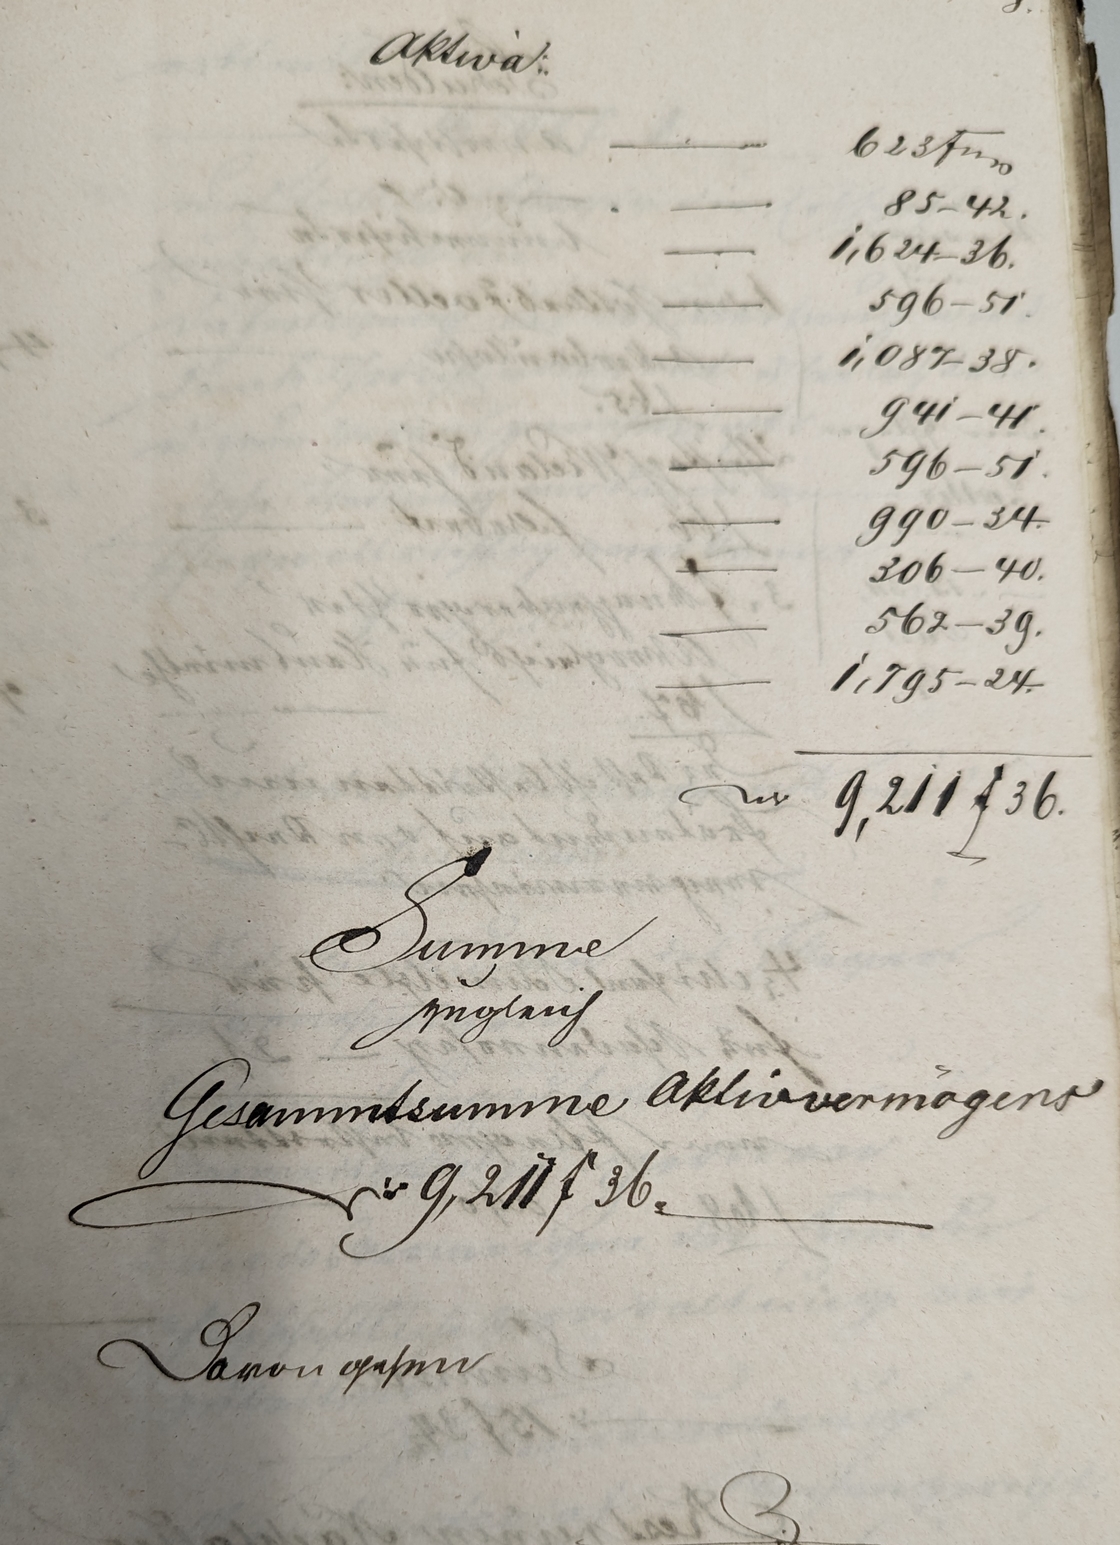 Aktiva:
623 f
85-42.
1,624-36.
596-51.
1,087-38.
941-41.
596-51.
990-34.
306-40.
562-39.
1,795-24.
9,211 f 36.
Summe
zugleich
Gesammtsumme Aktivvermögens
9,211 f 36.
Davon gehen